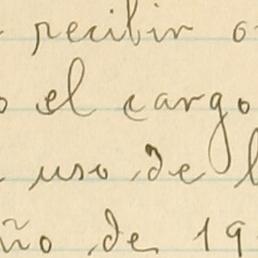 recibir
o el cargo
uso de l
ño de 19